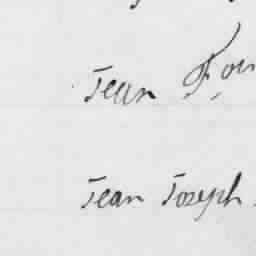 Jean
Jean Joseph